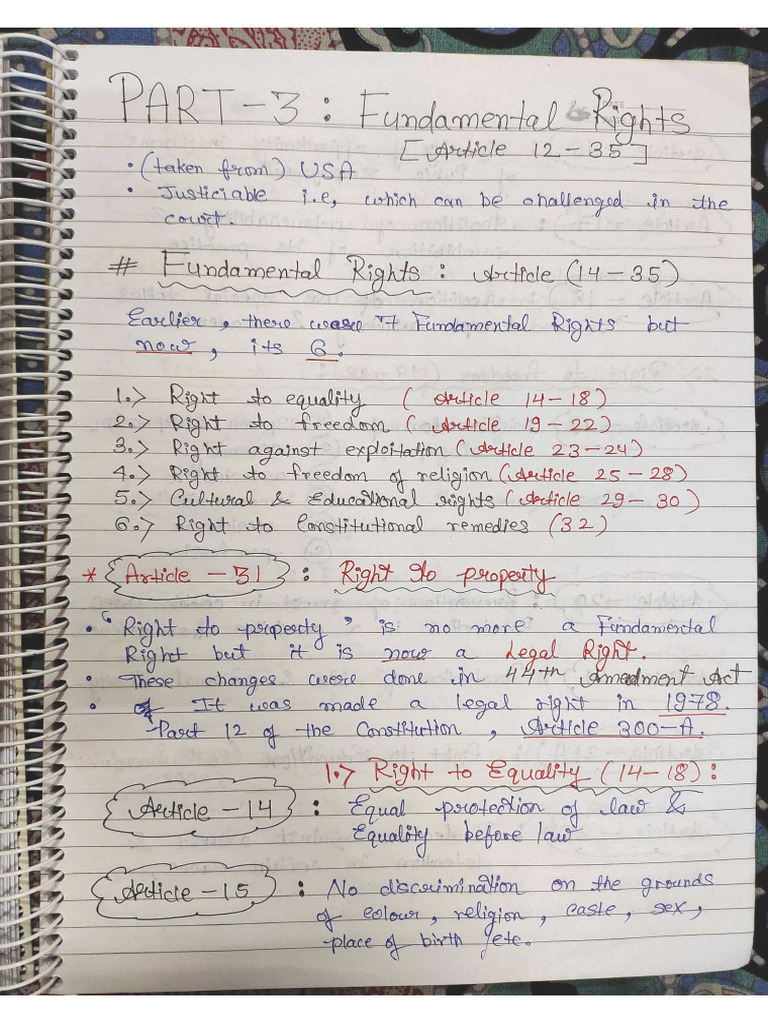 PART-3 : Fundamental Rights
[Article 12-35]
• (taken from) USA
• Justiciable i.e, which can be challenged in the
court.
# Fundamental Rights : Article (14-35)
Earlier, there were 7 Fundamental Rights but
now, its 6.
1.> Right to equality (Article 14-18)
2.> Right to freedom (Article 19-22)
3.> Right against exploitation (Article 23-24)
4.> Right to freedom of religion (Article 25-28)
5.> Cultural & Educational rights (Article 29-30)
6.> Right to Constitutional remedies (32)
* Article-31 : Right to property
• "Right to property" is no more a Fundamental
Right but it is now a Legal Right.
• These changes were done in 44th Amedment Act
• It was made a legal right in 1978.
Part 12 of the Constitution, Article 300-A.
1.> Right to Equality (14-18):
Article-14 : Equal protection of law &
Equality before law
Article-15 : No discrimination on the grounds
of colour, religion, caste, sex,
place of birth etc.